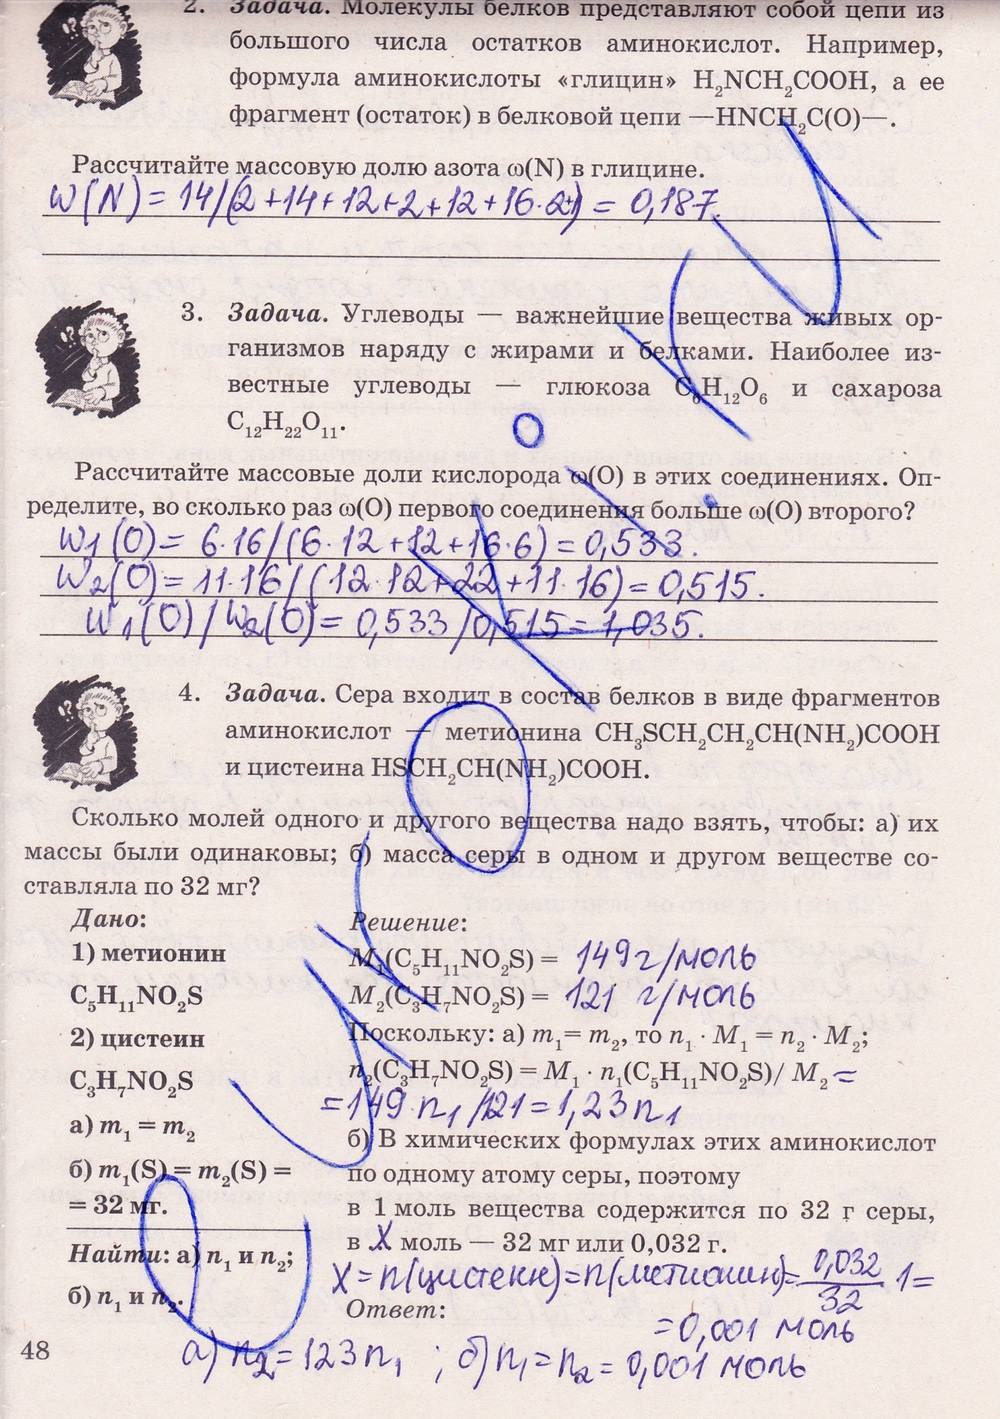 2. Задача. Молекулы белков представляют собой цепи из
большого числа остатков аминокислот. Например,
формула аминокислоты «глицин» H₂NCH₂COOH, а ее
фрагмент (остаток) в белковой цепи —HNCH₂C(O)—.
Рассчитайте массовую долю азота ω(N) в глицине.
ω(N) = 14/(2+14+12+2+12+16·2+1) = 0,187.
3. Задача. Углеводы — важнейшие вещества живых ор-
ганизмов наряду с жирами и белками. Наиболее из-
вестные углеводы — глюкоза C₆H₁₂O₆ и сахароза
C₁₂H₂₂O₁₁.
Рассчитайте массовые доли кислорода ω(O) в этих соединениях. Оп-
ределите, во сколько раз ω(O) первого соединения больше ω(O) второго?
ω1(O) = 6·16/(6·12+12+16·6) = 0,533.
ω2(O) = 11·16/(12·12+22+11·16) = 0,515.
ω1(O)/ω2(O) = 0,533/0,515 = 1,035.
4. Задача. Сера входит в состав белков в виде фрагментов
аминокислот — метионина CH₃SCH₂CH₂CH(NH₂)COOH
и цистеина HSCH₂CH(NH₂)COOH.
Сколько молей одного и другого вещества надо взять, чтобы: а) их
массы были одинаковы; б) масса серы в одном и другом веществе со-
ставляла по 32 мг?
Дано:
1) метионин
C₅H₁₁NO₂S
2) цистеин
C₃H₇NO₂S
а) m₁ = m₂
б) m₁(S) = m₂(S) =
= 32 мг.
Найти: а) n₁ и n₂;
б) n₁ и n₂.
Решение:
M₁(C₅H₁₁NO₂S) = 149 г/моль
M₂(C₃H₇NO₂S) = 121 г/моль
Поскольку: а) m₁ = m₂, то n₁ · M₁ = n₂ · M₂;
n₂(C₃H₇NO₂S) = M₁ · n₁(C₅H₁₁NO₂S)/ M₂ =
= 149 · n₁ /121 = 1,23 n₁
б) В химических формулах этих аминокислот
по одному атому серы, поэтому
в 1 моль вещества содержится по 32 г серы,
в X моль — 32 мг или 0,032 г.
X = n(цистеин) = n(метионин) = 0,032/32 · 1 =
= 0,001 моль
Ответ:
а) n₂ = 123 n₁ ; б) n₁ = n₂ = 0,001 моль
48